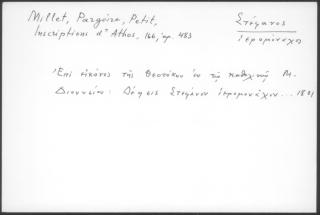 Millet, Pargoire, Petit,
Inscriptions d'Athos, 166, αρ. 483
Στέφανος
ἱερομόναχος
Ἐπὶ εἰκόνος τῆς Θεοτόκου ἐν τῷ καθολικῷ Μ.
Διονυσίου: Δέησις Στεφάνου ἱερομονάχου ... 1801